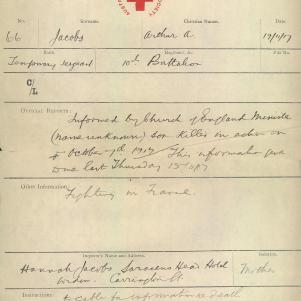 SOCIETY
No.
Surname.
Christian Names.
66 Jacobs Arthur A. 17/11/17
Rank.
Regiment, &c.
Temporary Sergeant 10th Battalion
C/
L
Official Reports:
Informed by Church of England Minister
(name unknown) son killed in action on
October 1917 This information
last Thursday 15
Other Information:
Fighting in France.
Inquirer's Name and Address.
Relation.
Hannah Jacobs, Saracens Head Hotel
Carrington St.
Mother
Instructions:
to Cable for information re death